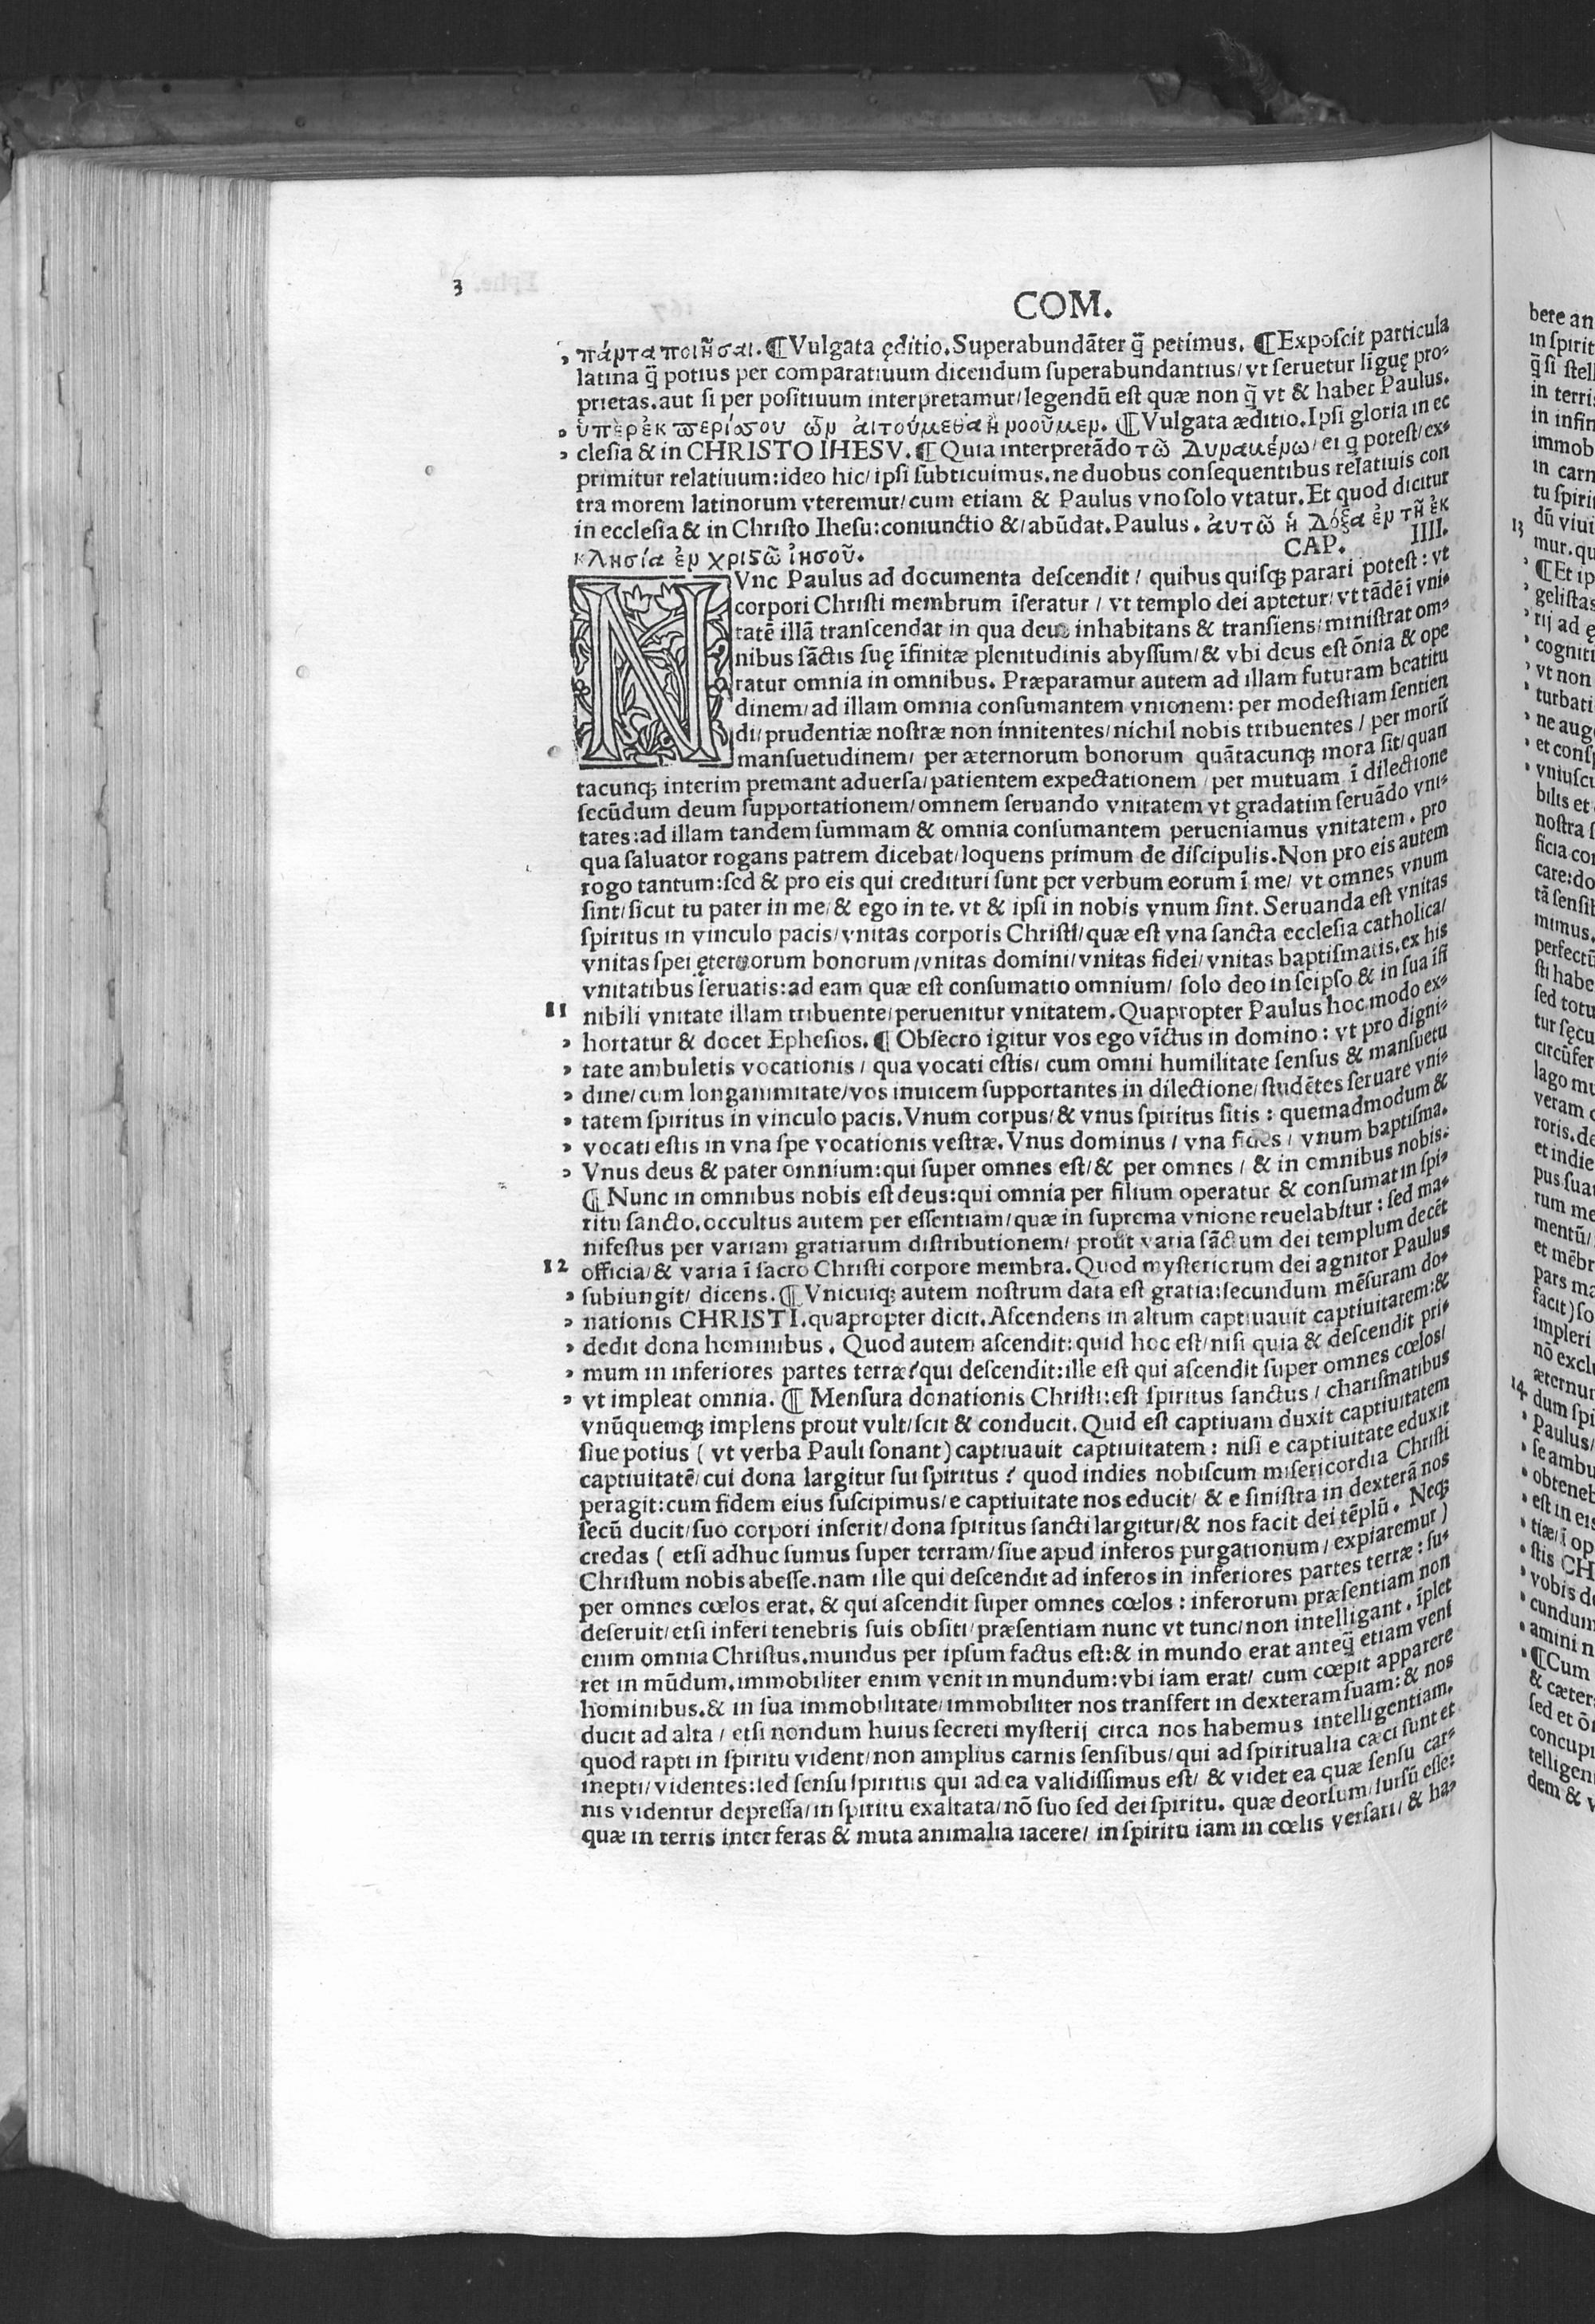 3
COM.
πάντα ποιῆσαι. ¶ Vulgata ędítio. Superabundãter q̃ petimus. ¶ Exposcit particula
latina q̃ potius per comparatiuum dicendum superabundantius/ vt seruetur linguę pro-
prietas. aut si per positiuum interpretamur/ legendũ est quæ non q̃ vt & habet Paulus.
ὑπὲρ ἐκ περίσσου ὧν αἰτούμεθα ἢ νοοῦμεν. ¶ Vulgata æditio. Ipsi gloria in ec
clesia & in CHRISTO IHESV. ¶ Quia interpretãdo τῶ Δυναμένω/ ei q̃ potest/ ex-
primitur relatiuum: ideo hic/ ipsi subticuimus. ne duobus consequentibus relatiuis con
tra morem latinorum vteremur/ cum etiam & Paulus vno solo vtatur. Et quod dicitur
in ecclesia & in Christo Ihesu: coniunctio &/ abũdat. Paulus. ἀυτῶ ἡ Δόξα ἐν τῆ ἐκ
κλησία ἐν χριςῶ ἰησοῦ. CAP. IIII.
NVnc Paulus ad documenta descendit/ quibus quisq; parari potest: vt
corpori Christi membrum ĩseratur/ vt templo dei aptetur/ vt tãdẽ ĩ vni-
tatẽ illã transcendat in qua deus inhabitans & transiens/ ministrat om-
nibus sãctis suę ĩfinitæ plenitudinis abyssum/ & vbi deus est õnia & ope
ratur omnia in omnibus. Præparamur autem ad illam futuram beatitu
dinem/ ad illam omnia consumantem vnionem: per modestiam sentien
di/ prudentiæ nostræ non innitentes/ nichil nobis tribuentes/ per morũ
mansuetudinem/ per æternorum bonorum quãtacunq; mora sit/ quan
tacunq; interim premant aduersa/ patientem expectationem/ per mutuam ĩ dilectione
secũdum deum supportationem/ omnem seruando vnitatem vt gradatim seruãdo vni-
tates: ad illam tandem summam & omnia consumantem perueniamus vnitatem. pro
qua saluator rogans patrem dicebat/ loquens primum de discipulis. Non pro eis autem
rogo tantum: sed & pro eis qui credituri sunt per verbum eorum ĩ me/ vt omnes vnum
sint/ sicut tu pater in me/ & ego in te. vt & ipsi in nobis vnum sint. Seruanda est vnitas
spiritus in vinculo pacis/ vnitas corporis Christi/ quæ est vna sancta ecclesia catholica/
vnitas spei ęternorum bonorum/ vnitas domini/ vnitas fidei/ vnitas baptismatis. ex his
vnitatibus seruatis: ad eam quæ est consumatio omnium/ solo deo in seipso & in sua ĩfi
11 nibili vnitate illam tribuente/ peruenitur vnitatem. Quapropter Paulus hoc modo ex-
hortatur & docet Ephesios. ¶ Obsecro igitur vos ego vĩctus in domino: vt pro digni-
tate ambuletis vocationis/ qua vocati estis/ cum omni humilitate sensus & mansuetu
dine/ cum longanimitate/ vos inuicem supportantes in dilectione/ studẽtes seruare vni-
tatem spiritus in vinculo pacis. Vnum corpus/ & vnus spiritus sitis: quemadmodum &
vocati estis in vna spe vocationis vestræ. Vnus dominus/ vna fides/ vnum baptisma.
Vnus deus & pater omnium: qui super omnes est/ & per omnes/ & in omnibus nobis.
¶ Nunc in omnibus nobis est deus: qui omnia per filium operatur & consumat in spi-
ritu sancto. occultus autem per essentiam/ quæ in suprema vnione reuelabitur: sed ma-
nifestus per variam gratiarum distributionem/ prout varia sãctum dei templum decẽt
12 officia/ & varia ĩ sacro Christi corpore membra. Quod mysteriorum dei agnitor Paulus
subiungit/ dicens. ¶ Vnicuiq; autem nostrum data est gratia: secundum mẽsuram do-
nationis CHRISTI. quapropter dicit. Ascendens in altum captiuauit captiuitatem: &
dedit dona hominibus. Quod autem ascendit: quid hoc est/ nisi quia & descendit pri-
mum in inferiores partes terræ? qui descendit: ille est qui ascendit super omnes cœlos/
vt impleat omnia. ¶ Mensura donationis Christi: est spiritus sanctus/ charismatibus
vnũquemq; implens prout vult/ scit & conducit. Quid est captiuam duxit captiuitatem
siue potius ( vt verba Pauli sonant) captiuauit captiuitatem: nisi e captiuitate eduxit
captiuitatẽ/ cui dona largitur sui spiritus? quod indies nobiscum misericordia Christi
peragit: cum fidem eius suscipimus/ e captiuitate nos educit/ & e sinistra in dexterã nos
secũ ducit/ suo corpori inserit/ dona spiritus sancti largitur/ & nos facit dei tẽplũ. Neq;
credas ( etsi adhuc sumus super terram/ siue apud inferos purgationum/ expiaremur)
Christum nobis abesse. nam ille qui descendit ad inferos in inferiores partes terræ: su-
per omnes cœlos erat. & qui ascendit super omnes cœlos: inferorum præsentiam non
deseruit/ etsi inferi tenebris suis obsiti/ præsentiam nunc vt tunc/ non intelligant. ĩplet
enim omnia Christus. mundus per ipsum factus est: & in mundo erat anteq̃ etiam veni
ret in mũdum. immobiliter enim venit in mundum: vbi iam erat/ cum cœpit apparere
hominibus. & in sua immobilitate/ immobiliter nos transfert in dexteram suam: & nos
ducit ad alta/ etsi nondum huius secreti mysterij circa nos habemus intelligentiam.
quod rapti in spiritu vident/ non amplius carnis sensibus/ qui ad spiritualia cæci sunt et
inepti/ videntes: sed sensu spiritus qui ad ea validissimus est/ & videt ea quæ sensu car-
nis videntur depressa/ in spiritu exaltata/ nõ suo sed dei spiritu. quæ deorsum/ sursũ esse:
quæ in terris inter feras & muta animalia iacere/ in spiritu iam in cœlis versari/ & ha-
bere an
in spirit
q̃ si stell
in terris
in infin
immob
in carn
tu spiri
13 dũ viui
mur. qu
¶ Et ip
gelistas
rij ad ę
cogniti
vt non
turbati
ne aug
et consp
vniuscu
bilis et
nostra s
ficia cor
care: do
tã sensib
mimus.
perfectũ
sti habe
sed totu
tur sęcu
circũfer
lago mu
veram c
roris. de
et indie
pus sua
rum me
mentũ/
et mẽbr
pars ma
facit) so
impleri
nõ exclu
æternur
14 dum spi
Paulus/
se ambu
obteneb
est in eis
tiæ/ ĩ op
stis CH
vobis de
cundum
amini n
¶ Cum
& cæter
sed et õ
concupi
telligen
dem & v